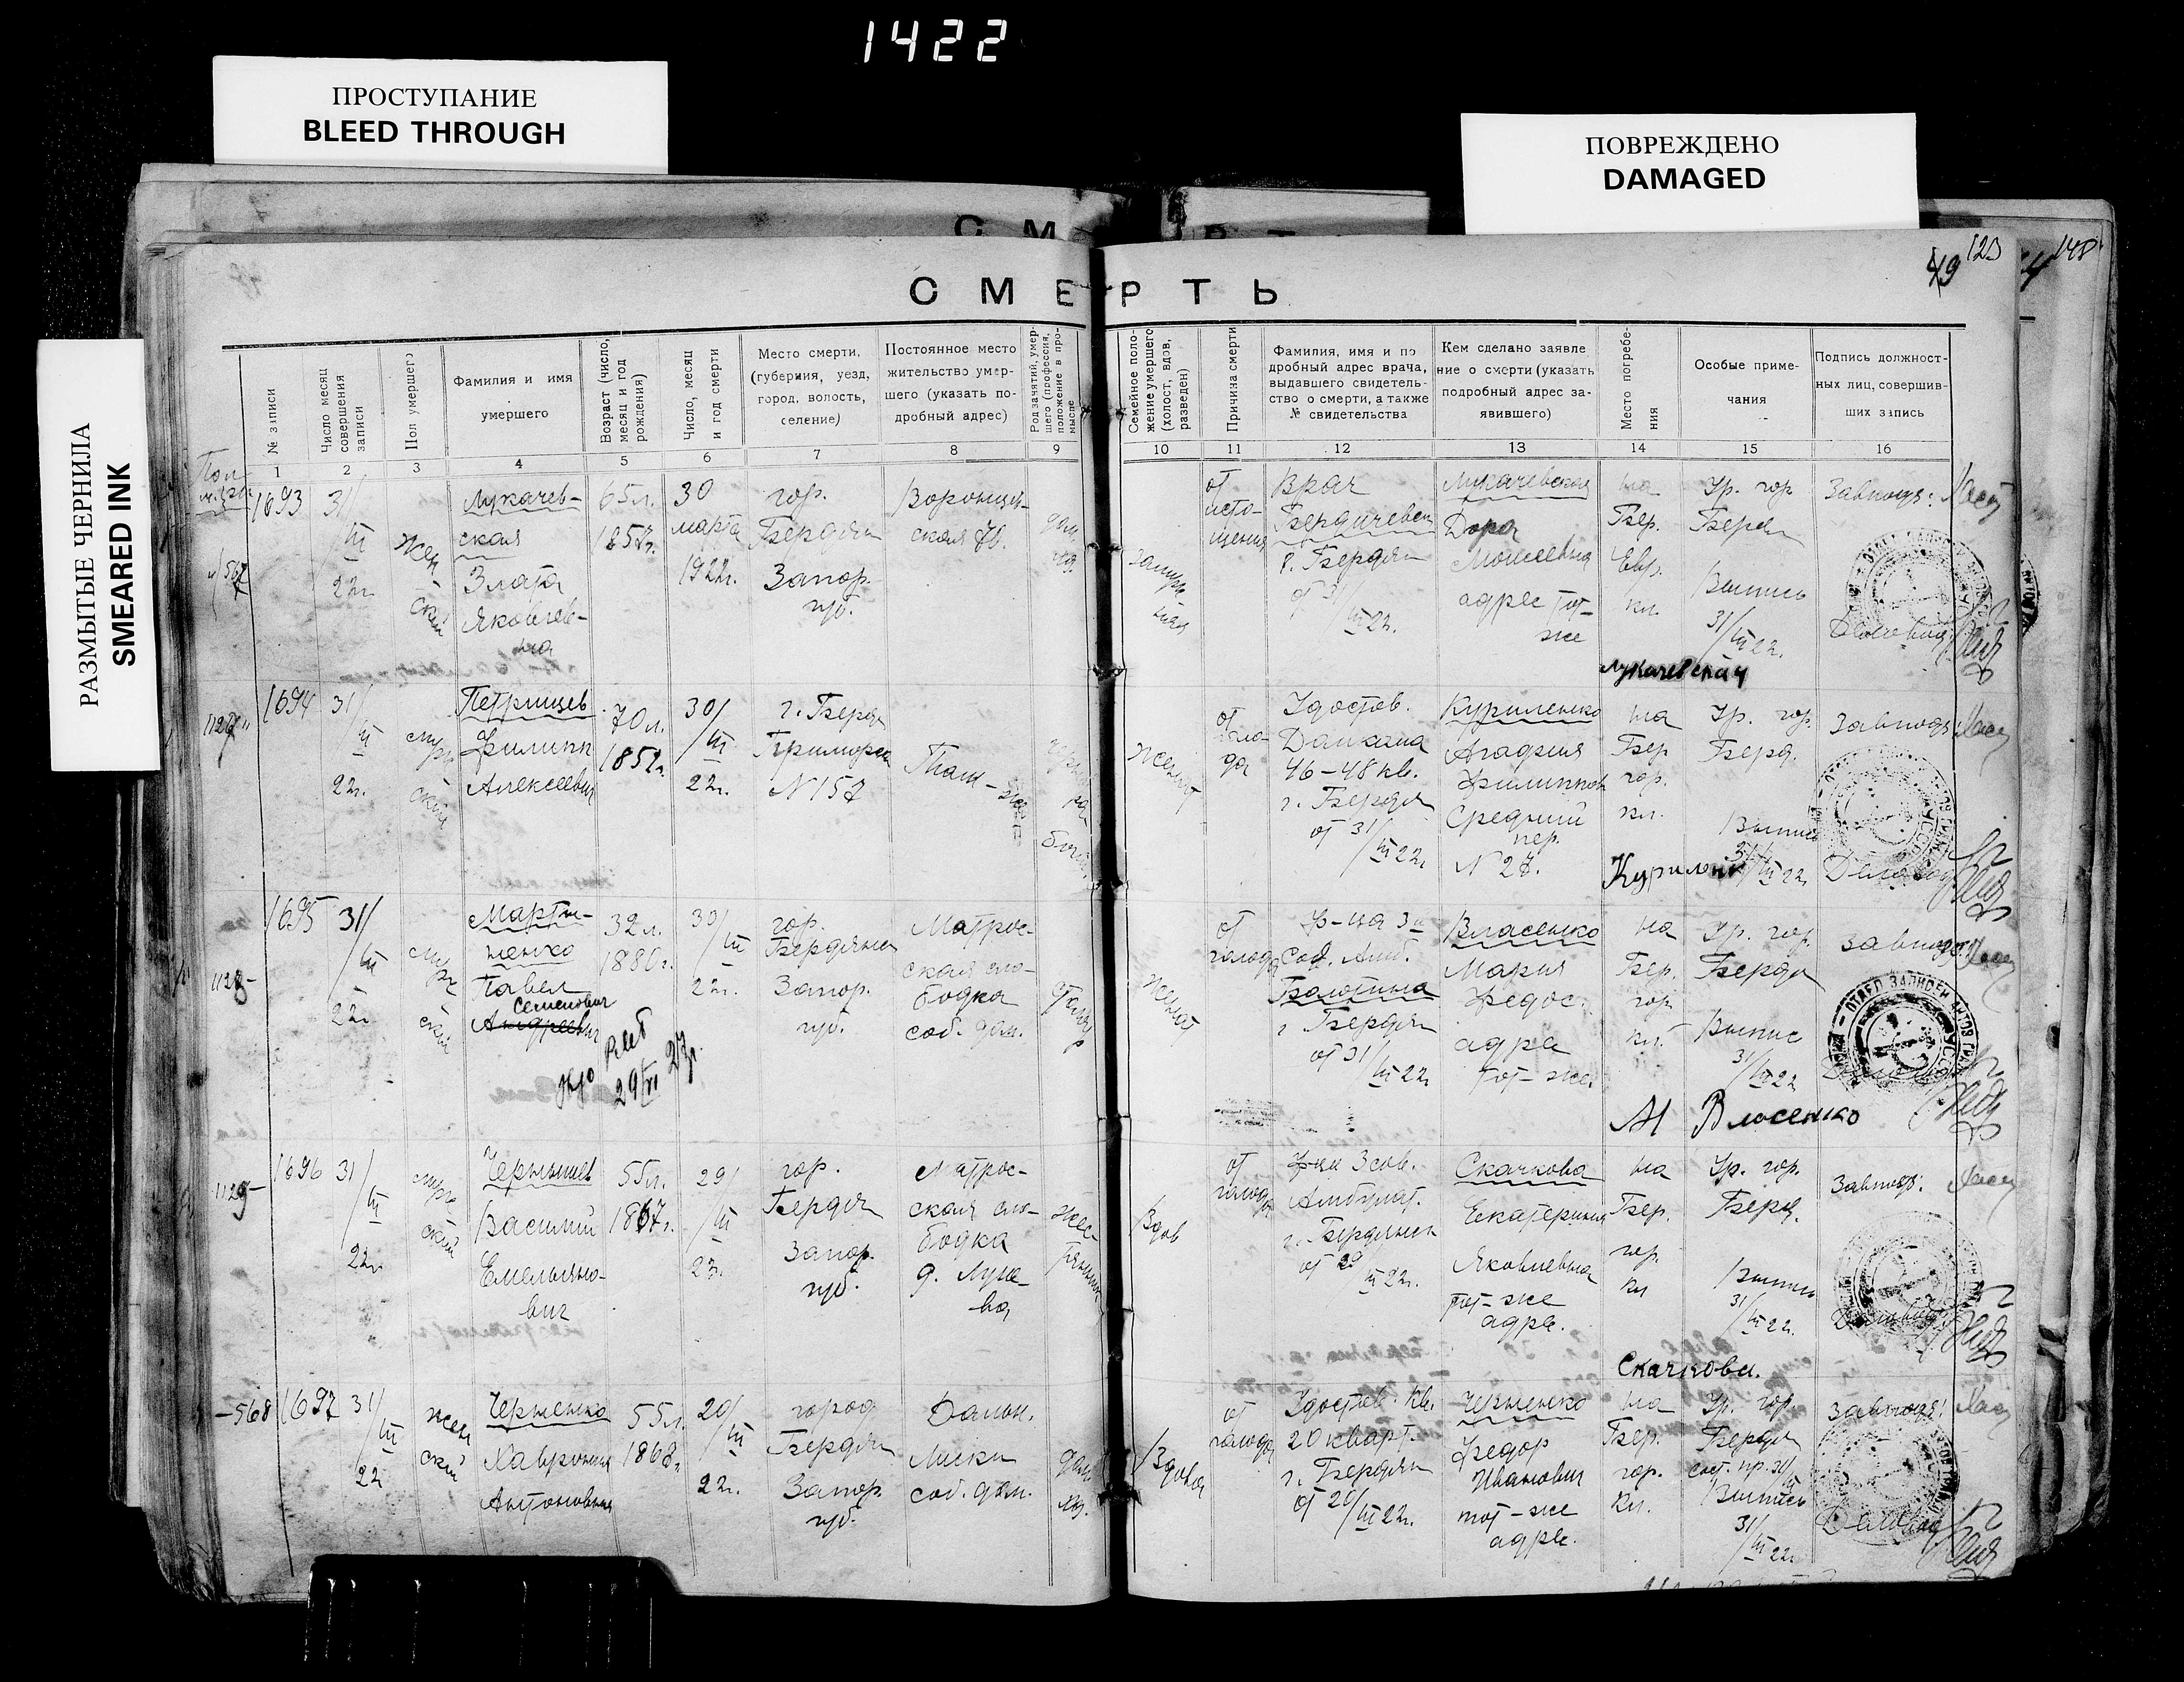 1422
ПРОСТУПАНИЕ
BLEED THROUGH
ПОВРЕЖДЕНО
DAMAGED
РАЗМЫТЫЕ ЧЕРНИЛА
SMEARED INK
СМЕРТЬ
49 123
148
№ записи
Число месяц совершения записи
Пол умершего
Фамилия и имя умершего
Возраст (число, месяц и год рождения)
Число, месяц и год смерти
Место смерти, (губерния, уезд, город, волость, селение)
Постоянное место жительство умершего (указать подробный адрес)
Род занятий, умершего (профессия, положение в промысле
Семейное положение умершего (холост, вдов, разведен)
Причина смерти
Фамилия, имя и подробный адрес врача, выдавшего свидетельство о смерти, а также № свидетельства
Кем сделано заявление о смерти (указать подробный адрес заявившего)
Место погребения
Особые примечания
Подпись должностных лиц, совершивших запись
1 2 3 4 5 6 7 8 9 10 11 12 13 14 15 16
567
1693
31/III 22г.
женский
Лукачев-
ская
Злата
Яковлев-
на
65л.
1857г.
30
марта
1922г.
гор.
Бердян
Запор.
губ.
Воронцов-
ская 70.
от
исто-
щения
Врач
г. Бердян
от 31/III 22г.
Лукачевская
Дора
Моисеевна
адрес тот-
же
на
Бер.
Евр.
кл.
Гр. гор
Бердян
Выпись
31/III 22г.
Завподр:
Лукачевская
1127
1694
31/III 22г.
мужской
Петрищев
Филипп
Алексеевич
70л.
1852г.
30/III 22г.
г. Бердян
Приморск
N 157
Там-же
Женат
от
голо-
да
Удостов.
46-48 кв.
г. Бердян
от 31/III 22г
Куриленко
Агафия
Филиппов
Средний
пер.
N 27.
на
Бер
гор.
кл.
Гр. гор.
Берд.
Выпись
31/III 22г
Завподр
1128
1695
31/III 22г
мужской
Марты-
ненко
Павел
Семенович
Андреевич
32л.
1880г.
30/III 22г.
гор.
Бердянск
Запор.
губ.
Матрос-
ская сло-
бодка
соб. дом.
29/VI 27г.
Женат
от
голода
Сов. Амб.
г. Бердян
от 31/III 22г
Власенко
Мария
Федос.
адрес
тот-же
на
Бер.
гор
кл.
Гр. гор.
Бердян
Выпись
31/III 22
Завподр.
ОТДЕЛ ЗАПИСЕЙ АКТОВ ГРАЖД
М Власенко
1129
1696
31/III 22г
мужской
Чернышев
Василий
Емельяно-
вич
55л.
1867г.
29/III 22г.
гор.
Бердян
Запор.
губ.
Матрос-
ская сло-
бодка
Вдов
от
голода
3 сов.
Амбулат.
г. Бердянск
Скачкова
Екатерина
Яковлевна
тот-же
адрес.
на
Бер.
гор.
кл
Гр. гор.
Берд.
Выпись
31/III 22г.
Завподр.
Скачкова.
568
1697
31/III 22
женский
Черненко
Хаврония
Антоновна
55л.
1868г
20/III 22г.
город
Бердян
Запор.
губ.
соб. дом.
Вдова
от
голода
Удостов. кв.
20 кварт.
г. Бердян
от 20/III 22г.
Черненко
Федор
Иванович
тот-же
адрес.
на
Бер.
гор.
кл.
Гр. гор.
Бердян
Выпись
31/III 22г
Завподр.